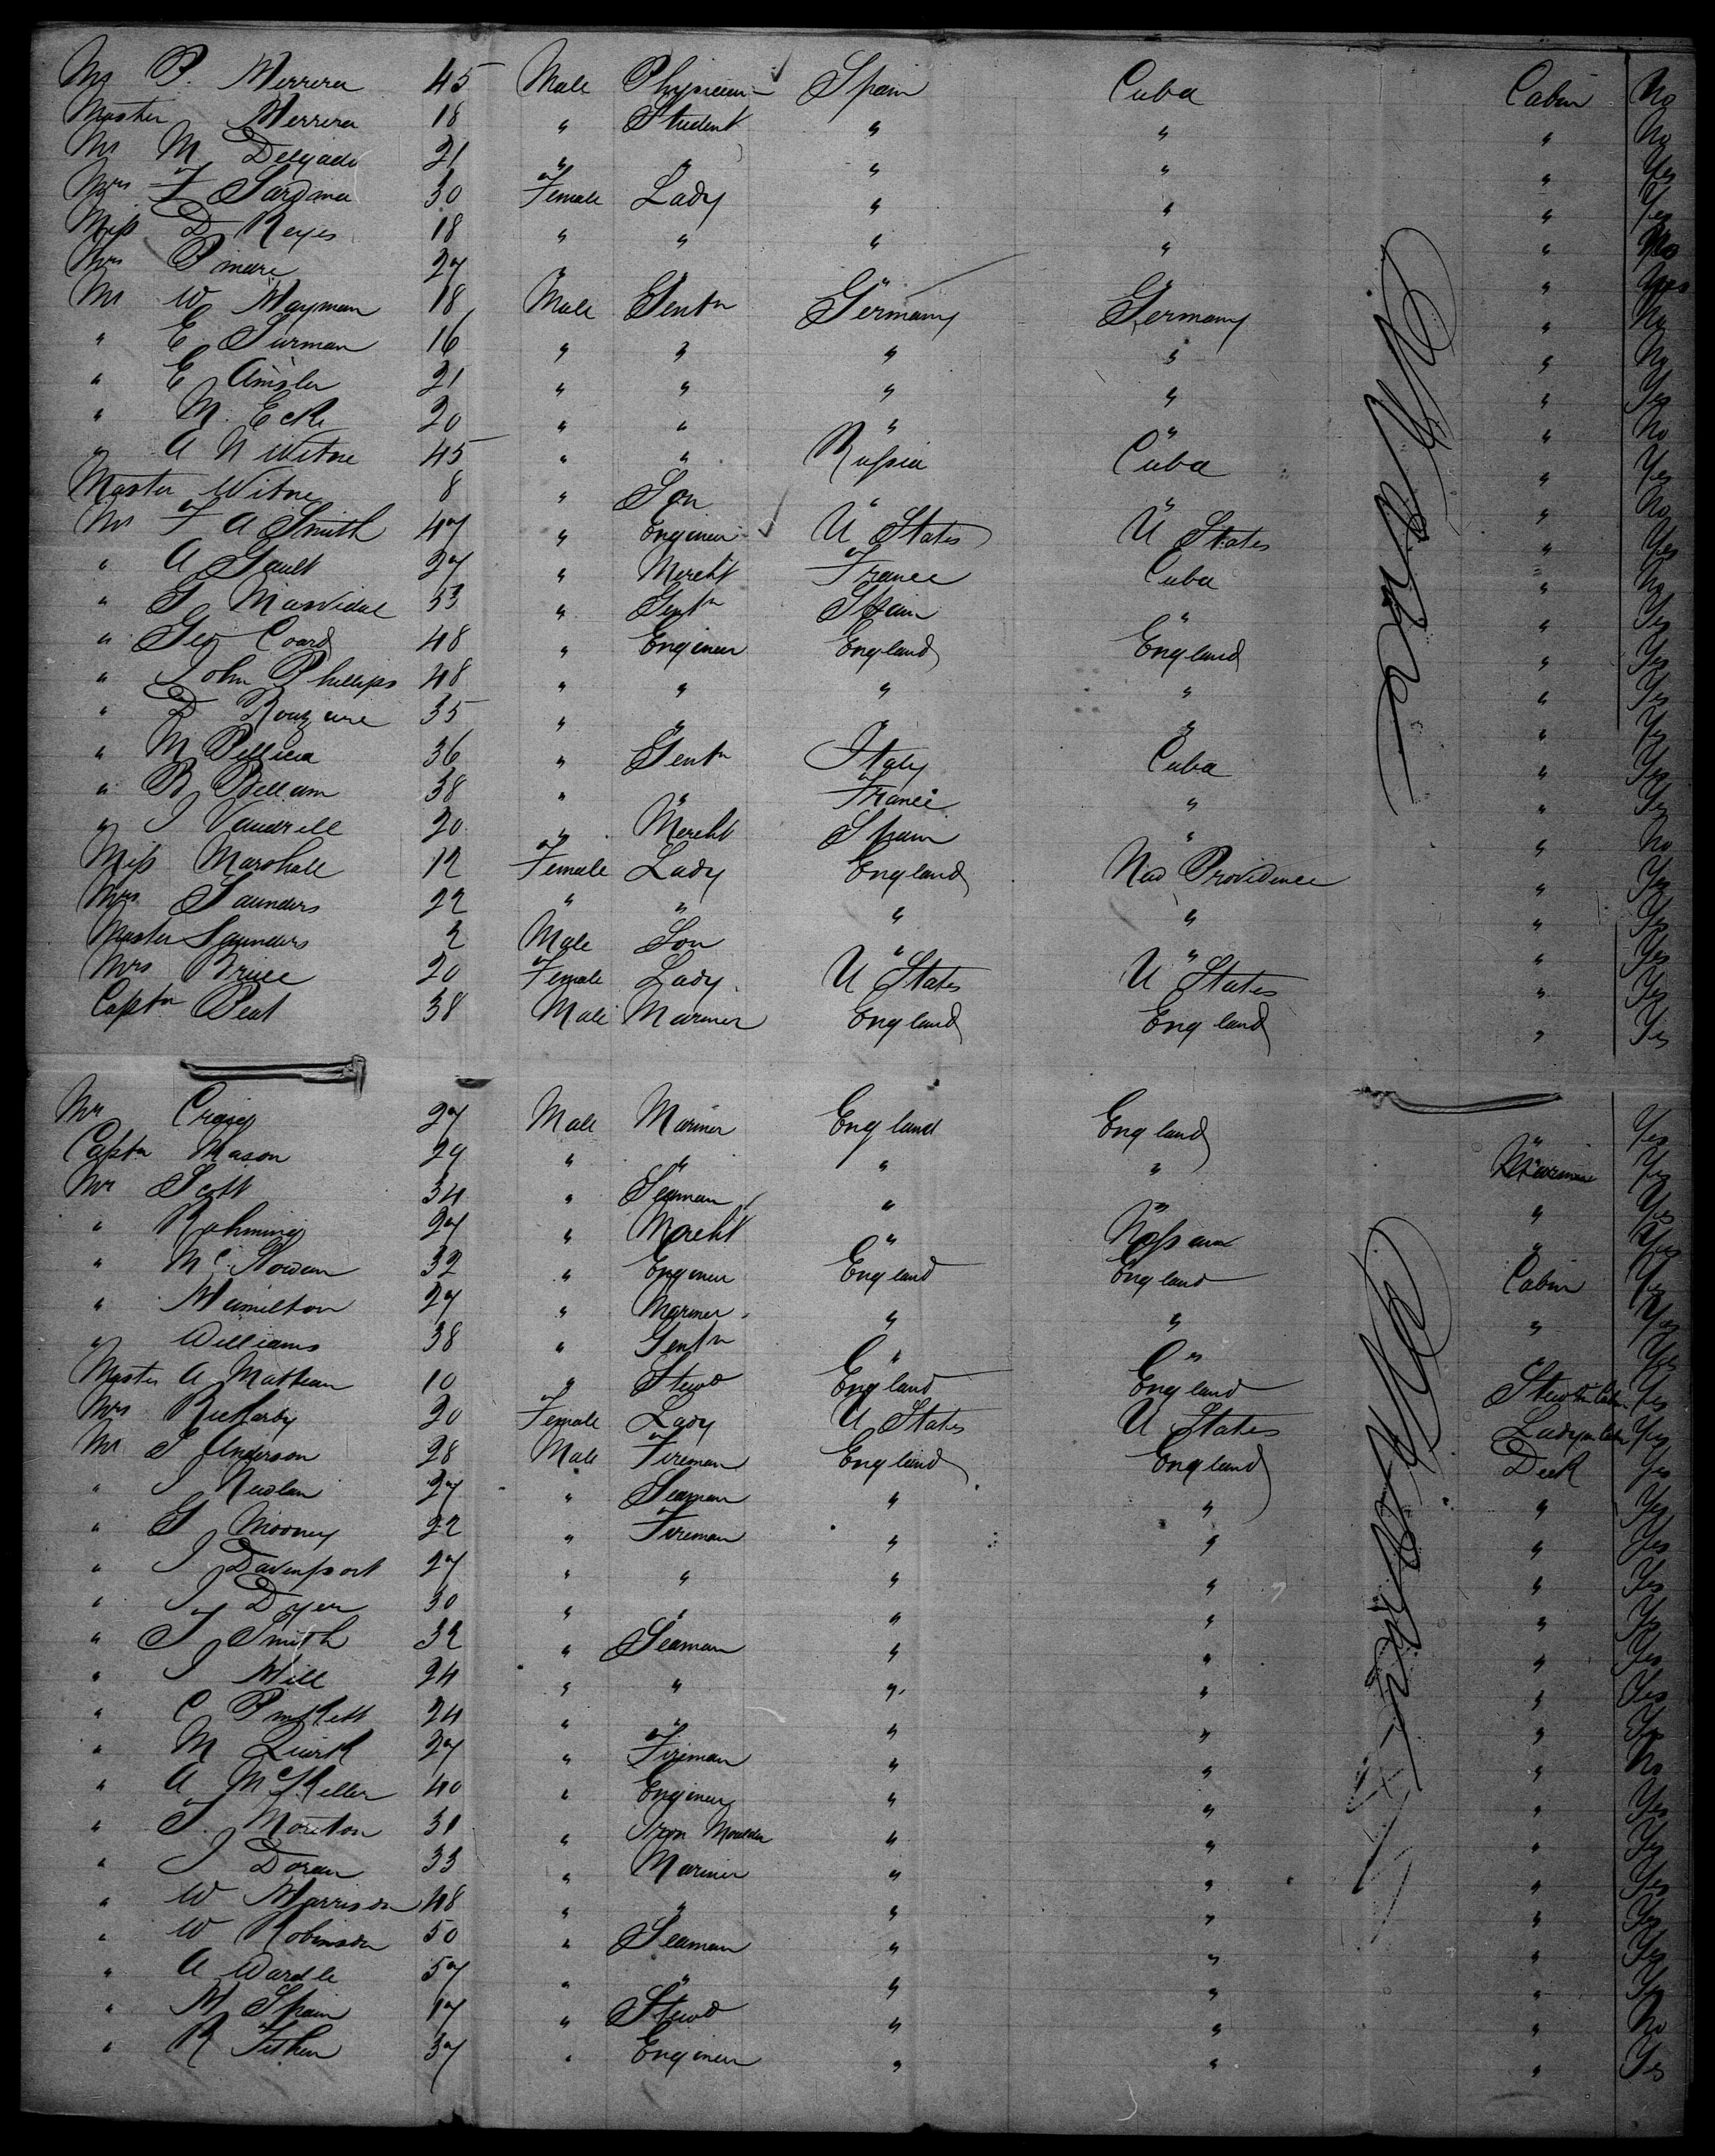 Mr P. Herrera 45 Male Physician Spain Cuba Cabin No
Master Herrera 18 " Student " " " No
Mr M Delgado 21 " " " " " Yes
Mrs F Sardina 30 Female Lady " " " Yes
Miss D Reyes 18 " " " " "
Mrs 27 " " " " " Yes
Mr W Hayman 18 Male Gentn Germany Germany " No
" E Surman 16 " " " " " No
" E Amsler 21 " " " " " Yes
" M. Eck 20 " " " " " No
" A N Witne 45 " " Russia Cuba " Yes
Master Witne 8 " Son " " " No
Mr F A Smith 47 " Engineer U States U States " Yes
" A Gault 27 " Mercht France Cuba " No
" G Masvidal 53 " Gentn Spain " " Yes
" Geo Coard 48 " Engineer England England " Yes
" John Phillips 48 " " " " " Yes
" D 35 " " " " " Yes
" M Pellicia 36 " Gentn Italy Cuba " Yes
" B Bellam 38 " " France " " Yes
" J Vandrell 20 " Mercht Spain " " No
Miss Marshall 12 Female Lady England New Providence " Yes
Mrs Saunders 22 " " " " " Yes
Master Saunders 2 Male Son " " " Yes
Mrs Bruce 20 Female Lady U States U States " Yes
Captn Peat 38 Male Mariner England England " Yes
Mr Craig 27 Male Mariner England England " Yes
Captn Mason 29 " " " " Yes
Mr Scott 34 " Seaman " " " Yes
" Rahming 27 " Mercht " Nassau " Yes
" McGowan 32 " Engineer England England Cabin Yes
" Hamilton 27 " Mariner " " " Yes
" Williams 38 " Gentn " " " Yes
Master A Mathean 10 " Stewd England England Stewd in Cabin Yes
Mrs Rickarby 20 Female Lady U States U States Lady in Cabin Yes
Mr J Anderson 28 Male Fireman England England Deck Yes
" J Newlan 27 " Seaman " " " Yes
" G Mooney 22 " Fireman " " " Yes
" J Davenport 27 " " " " " Yes
" J Dyer 30 " " " " " Yes
" T Smith 32 " Seaman " " " Yes
" J Hill 24 " " " " " Yes
" C 24 " " " " " Yes
" M Quirk 27 " Fireman " " " No
" A McKellar 40 " Engineer " " " Yes
" T. Moreton 31 " Iron Moulder " " " Yes
" J Doran 33 " Mariner " " " Yes
" W Harrison 48 " " " " " Yes
" W Robinson 50 " Seaman " " " Yes
" A Wardle 57 " " " " " Yes
" H Spain 17 " Stewd " " " No
" R 37 " Engineer " " " Yes